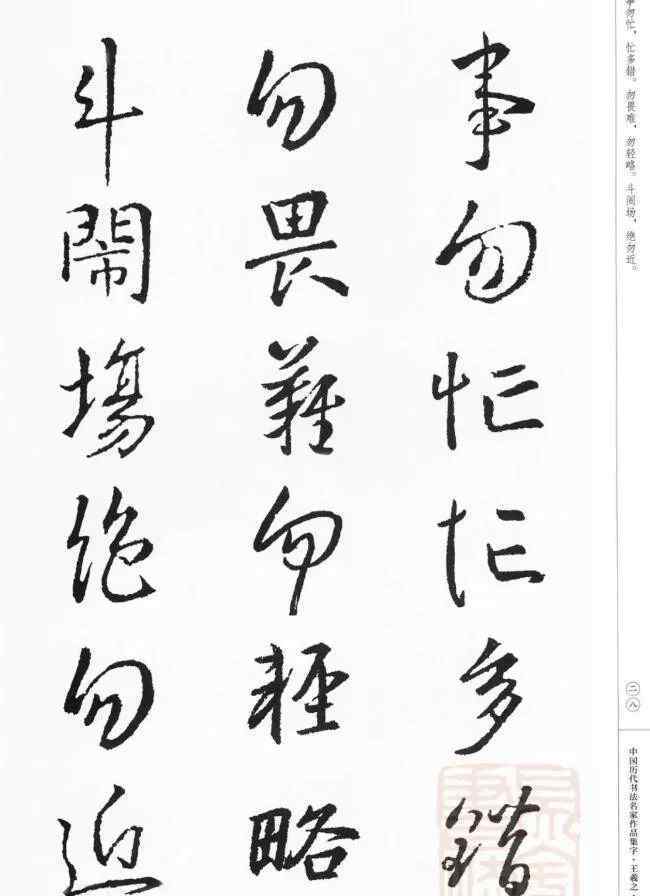 事勿忙忙多錯
勿畏難勿輕略
斗鬧場絶勿近
事勿忙，忙多错。勿畏难，勿轻略。斗闹场，绝勿近。
二八
中国历代书法名家作品集字·王羲之